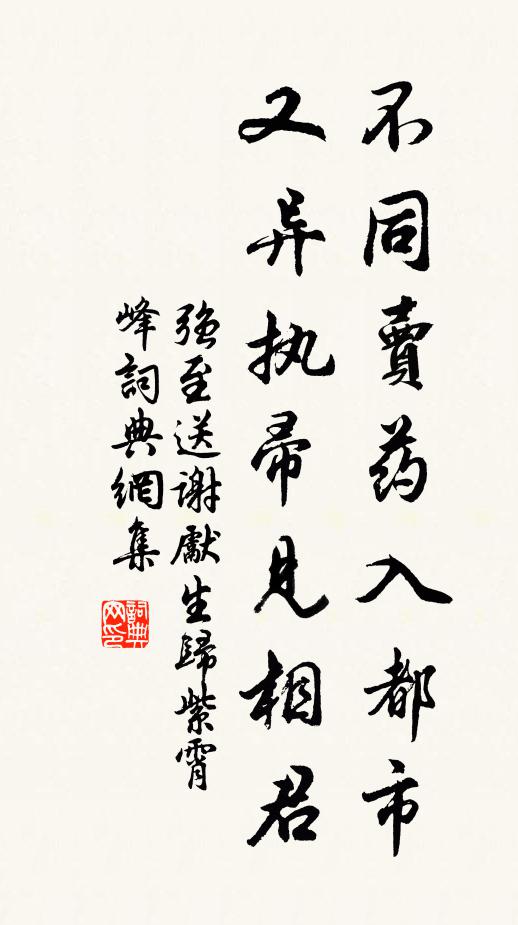 不同賣药入都市
又异执帚見相君
强至送謝獻生歸紫霄
峰詞典網集
詞典网印